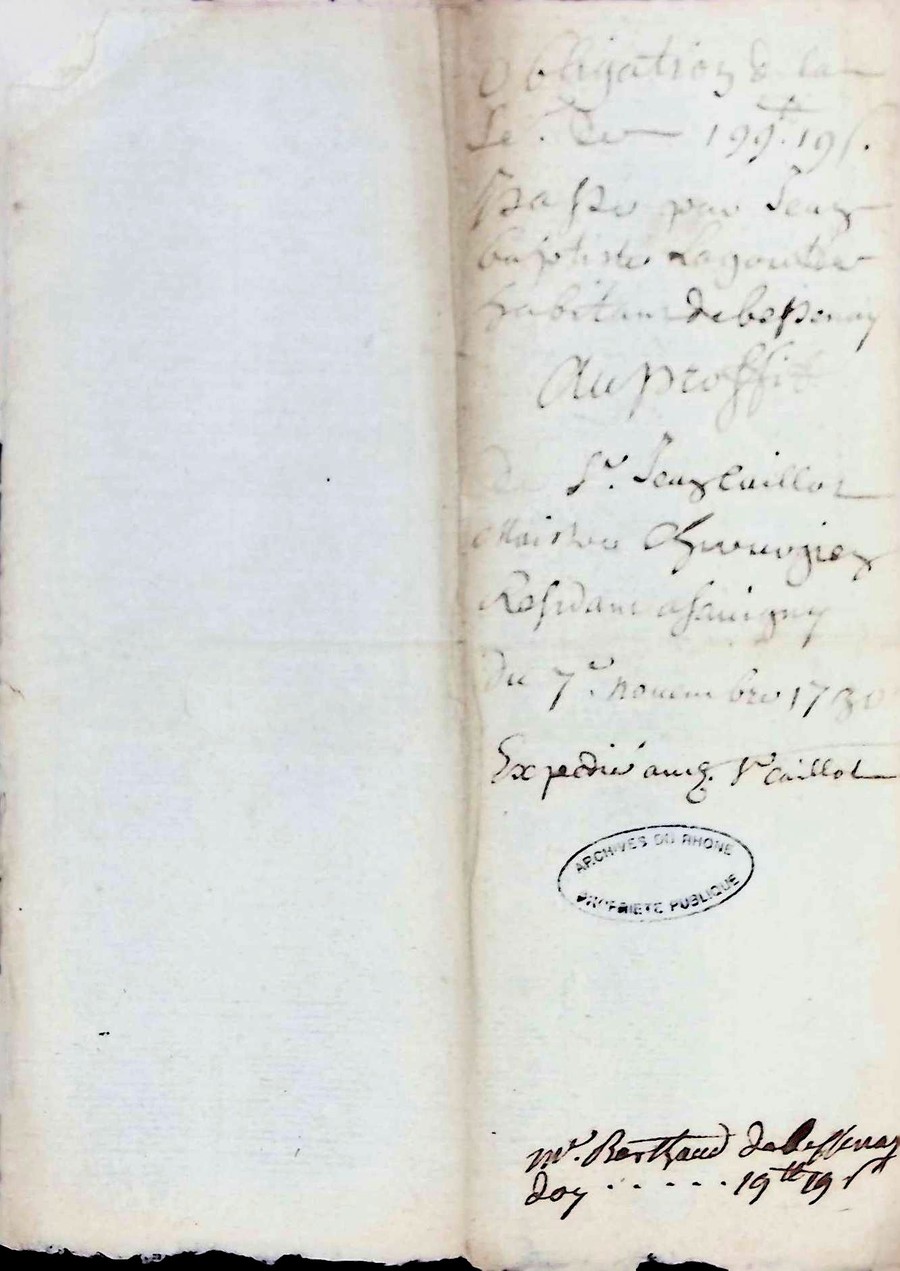 Obligation de la
So.e de 199.tt 19 s.
Passée par Jean
baptiste Lagoutte
habitant de bessenay
Au proffit
de S.r Jean Caillot
Maistre Chirurgien
Residant a Savigny
du 7.e novembre 1730
Expedié aud. S.r Caillot
ARCHIVES DU RHONE
PROPRIETE PUBLIQUE
M.e Berthaud de Bessenay
doy ..... 19.tt 19 s